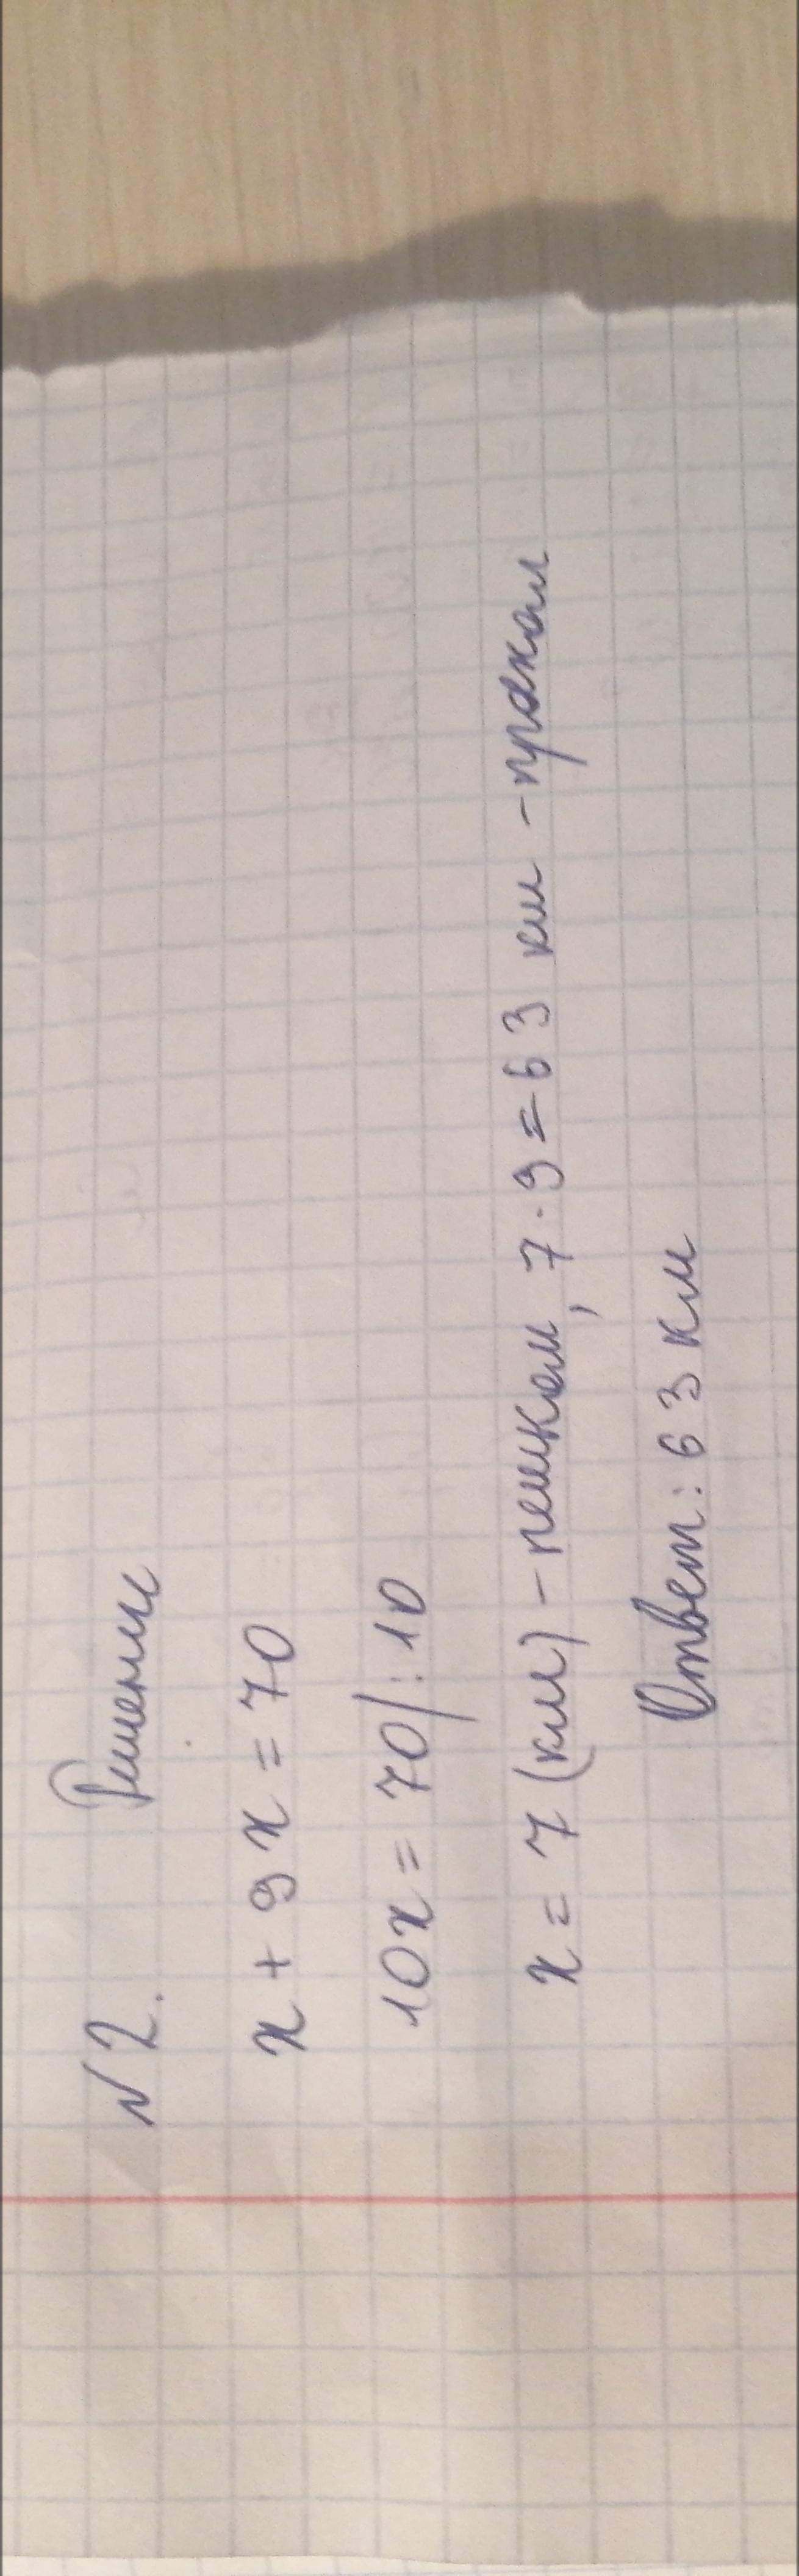 №2. Решение
x + 9x = 70
10x = 70 /: 10
x = 7 (км) - пешком, 7 · 9 = 63 км -
Ответ: 63 км